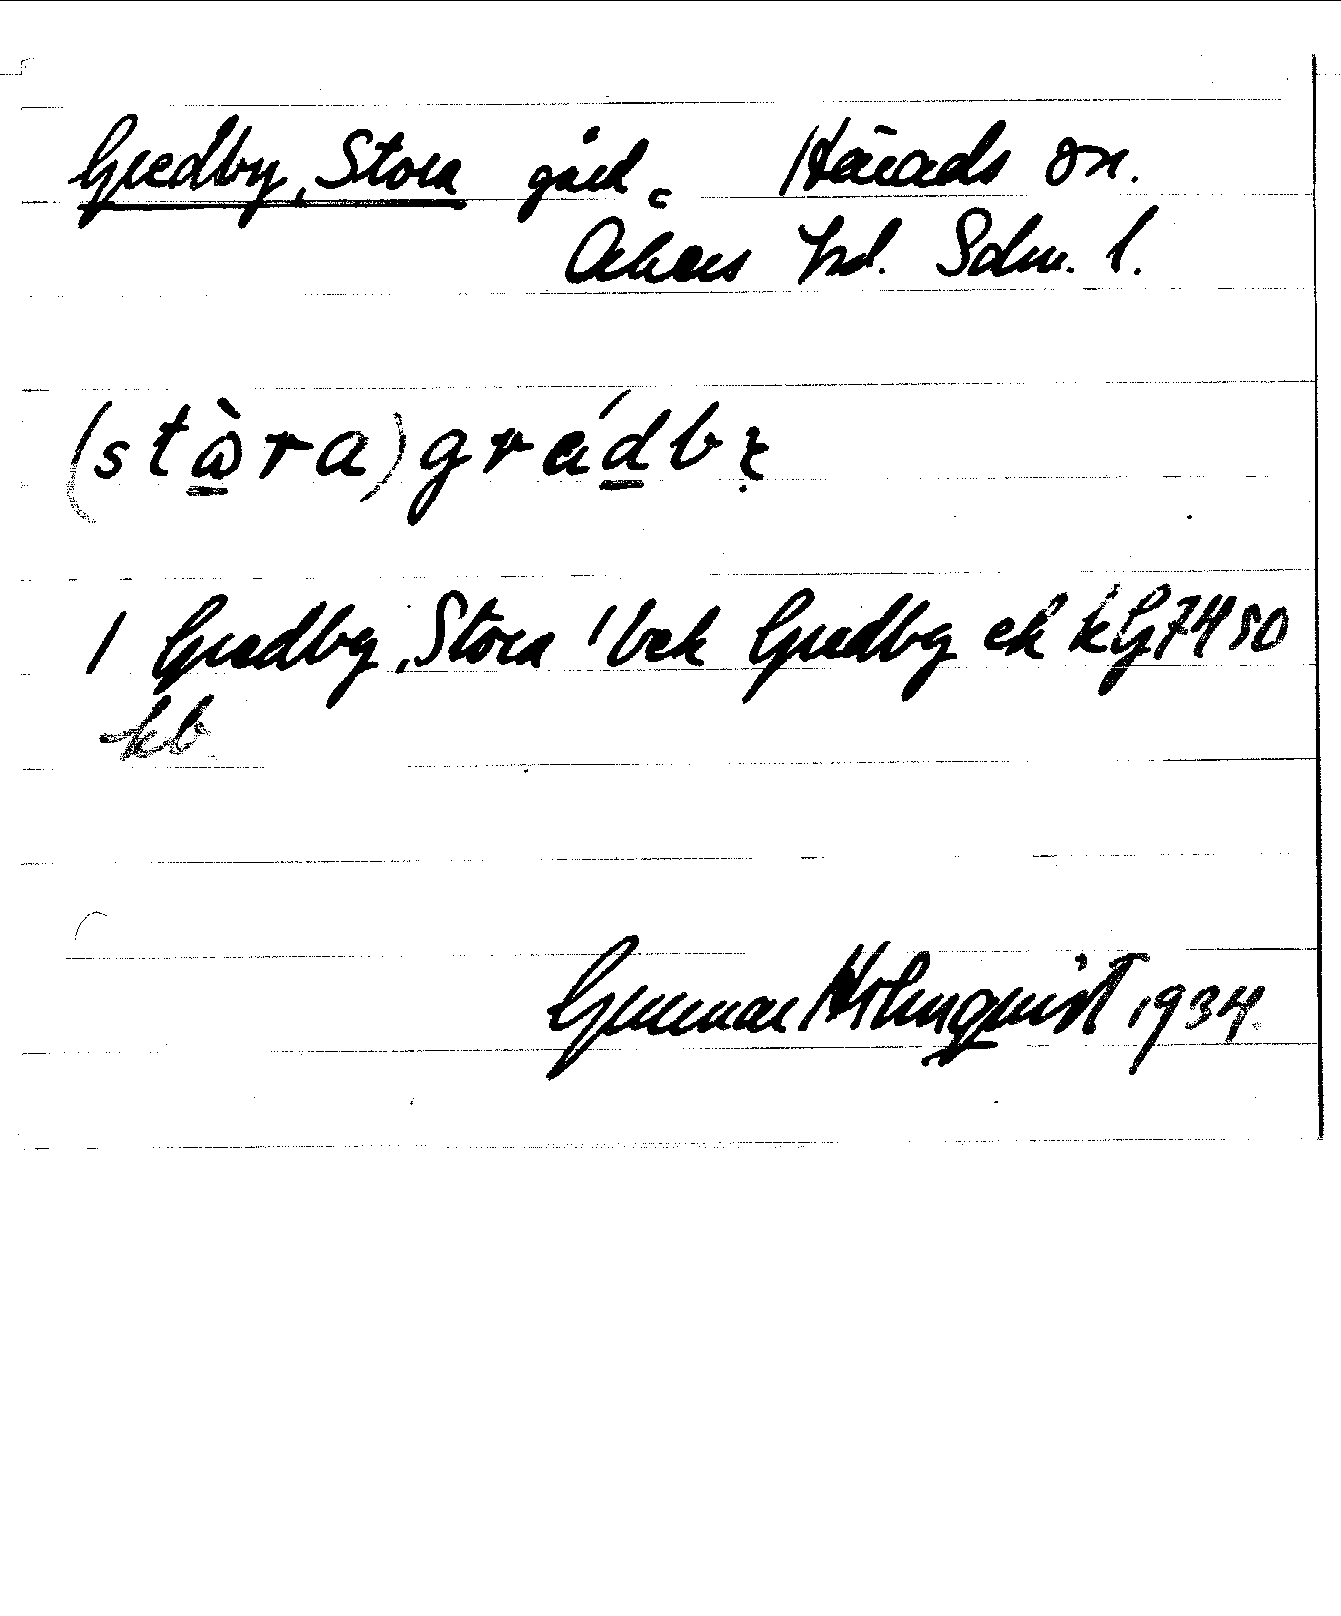 Gredby, Stora gård. Härads sn.
Åkers hd. Sdm. l.
(stò̱ra) grǽḏbı̣
1 Gredby, Stora 1 bek Gredby ek
kb
Gunnar Holmquist 1934.